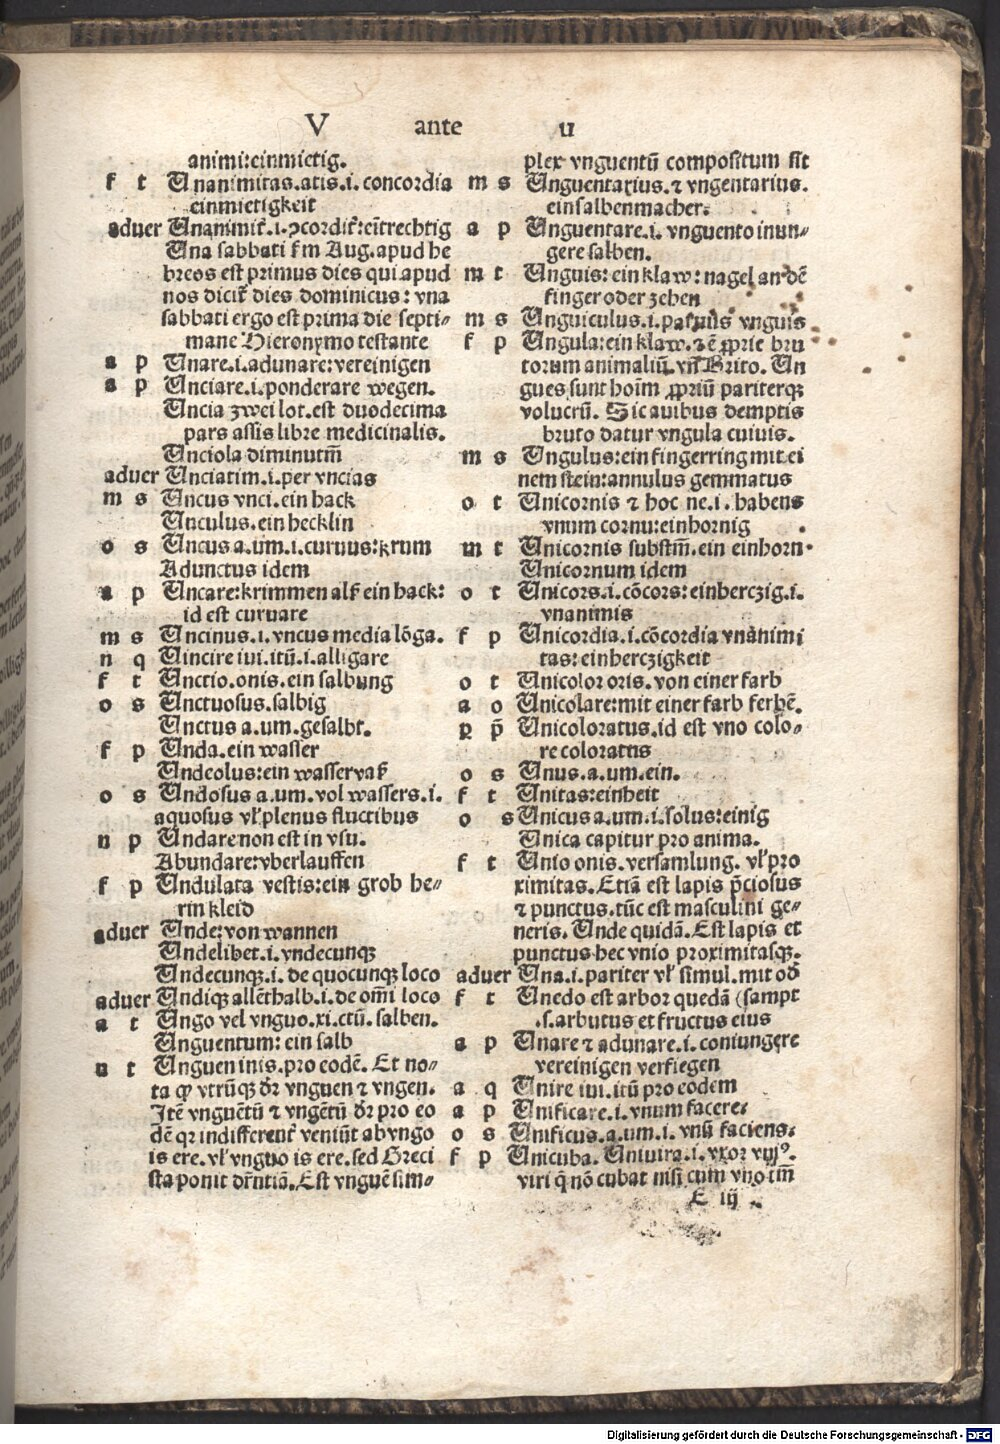 V ante u
animi:einmietig.
f t Unanimitas.atis.i.concordia
einmietigkeit
aduer Unanimit͛.i.ꝯcordit͛:eītrechtig
Una sabbati ẜm Aug.apud he
breos est primus dies qui apud
nos dicit͛ dies dominicus: vna
sabbati ergo est prima die septi⸗
mane Hieronymo testante
a p Unare.i.adunare:vereinigen
a p Unciare.i.ponderare wegen.
Uncia zwei lot.est duodecima
pars assis libre medicinalis.
Unciola diminutm̄
aduer Unciatim.i.per vncias
m s Uncus vnci.ein hack
Unculus.ein hecklin
o s Uncus a.um.i.curuus:krum
Adunctus idem
a p Uncare:krimmen alß ein hack:
id est curuare
m s Uncinus.i.vncus media lōga.
n q Uincire iui.itū.i.alligare
f t Unctio.onis.ein salbung
o s Unctuosus.salbig
Unctus a.um.gesalbt.
f p Unda.ein wasser
Undeolus:ein wasservaß
o s Undosus a.um.vol wassers.i.
aquosus vl̓ plenus fluctibus
n p Undare non est in vsu.
Abundare:vberlauffen
f p Undulata vestis:ein grob he⸗
rin kleid
aduer Unde:von wannen
Undelibet.i.vndecunqꝫ
Undecunqꝫ.i.de quocunqꝫ loco
aduer Undiqꝫ allēthalb.i.de om̄i loco
a t Ungo vel vnguo.xi.ctū.salben.
Unguentum: ein salb
n t Unguen inis.pro eodē. Et no⸗
ta ꝙ vtrūqꝫ dr̄ vnguen ⁊ vngen.
Itē vnguētū ⁊ vngētū dr̄ pro eo
dē qꝛ indifferent͛ veniūt ab vngo
is ere.vl̓ vnguo is ere.sed Greci
sta ponit dr̄ntiā.Est vnguē sim⸗
plex vnguentū compositum sit
m s Unguentarius.⁊ vngentarius.
ein salbenmacher.
a p Unguentare.i. vnguento inun⸗
gere salben.
m t Unguis: ein klaw: nagel an dē
finger oder zehen
m s Unguiculus.i.paruus vnguis
f p Ungula:ein klaw.⁊ ē ꝓprie bru
torum animaliū. vn̄ Brito. Un
gues sunt hoīm ꝓpriū pariterqꝫ
volucrū. Sic auibus demptis
bruto datur vngula cuiuis.
m s Ungulus:ein fingerring mit ei
nem stein:annulus gemmatus
o t Unicornis ⁊ hoc ne.i.habens
vnum cornu:einhornig
m t Unicornis substm̄.ein einhorn
Unicornum idem
o t Unicors.i.cōcors: einherczig.i.
vnanimis
f p Unicordia.i.cōcordia vnanimi
tas:einherczigkeit
o t Unicolor oris.von einer farb
a o Unicolare:mit einer farb ferbē.
ꝑ p̄ Unicoloratus.id est vno colo⸗
re coloratus
o s Unus.a.um.ein.
f t Unitas:einheit
o s Unicus a.um.i.solus:einig
Unica capitur pro anima.
f t Unio onis.versamlung. vl̓ pro
ximitas.Etiā est lapis p̄ciosus
⁊ punctus.tūc est masculini ge⸗
neris.Unde quidā.Est lapis et
punctus hec vnio proximitasqꝫ.
aduer Una.i.pariter vl̓ simul.mit od̓
f t Unedo est arbor quedā (sampt
.s.arbutus et fructus eius
a p Unare ⁊ adunare.i.coniungere
vereinigen verfiegen
a q Unire iui.itū pro eodem
a p Unificare.i.vnum facere.
o s Unificus.a.um.i.vnū faciens.
f p Unicuba. Univira.i.vxor vniꝰ.
viri q̄ nō cubat nisi cum vno tm̄
E iij
Digitalisierung gefördert durch die Deutsche Forschungsgemeinschaft - DFG